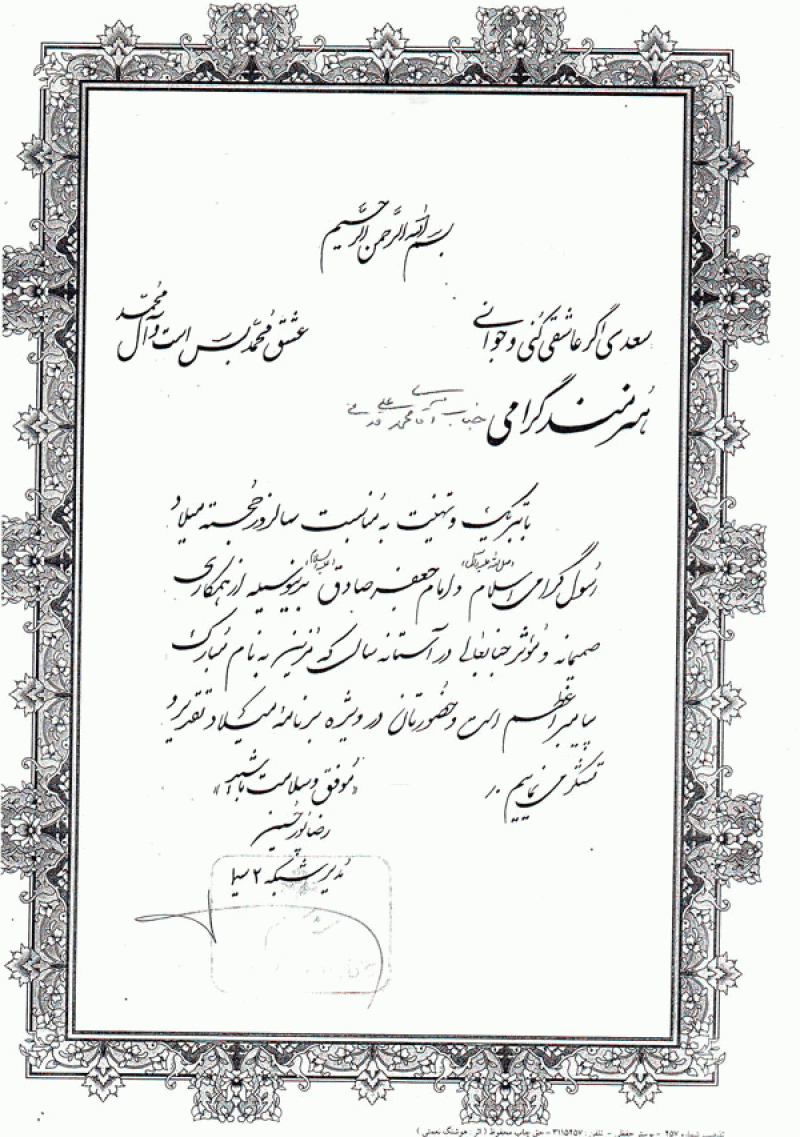 بسم الله الرحمن الرحیم
سعدی اگر عاشقی کنی و جوانی عشق محمّد بس است و آل محمّد
هنرمند گرامی جناب آقا محمد علی
با تبریک و تهنیت به مُناسبت سالروز خجسته میلاد
رسول گرامی اسلام (صلی الله علیه و آله) و امام جعفر صادق (علیه السلام) بدینوسیله از همکاری
صمیمانه و مُوثر جنابعالی در آستانه سالی که مُزین به نام مُبارک
پیامبر اعظم است و حضورتان در ویژه برنامه میلاد تقدیر و
تشکر می نماییم .
«مُوفق و سلامت باشید»
رضا پورحسین
مُدیر شبکه ۲ سیما
تذهیب شماره ۹۵۷ - پوستر حفظی - تلفن : ۳۱۱۵۴۵۷ - حق چاپ محفوظ ( اثر : هوشنگ نعمتی )